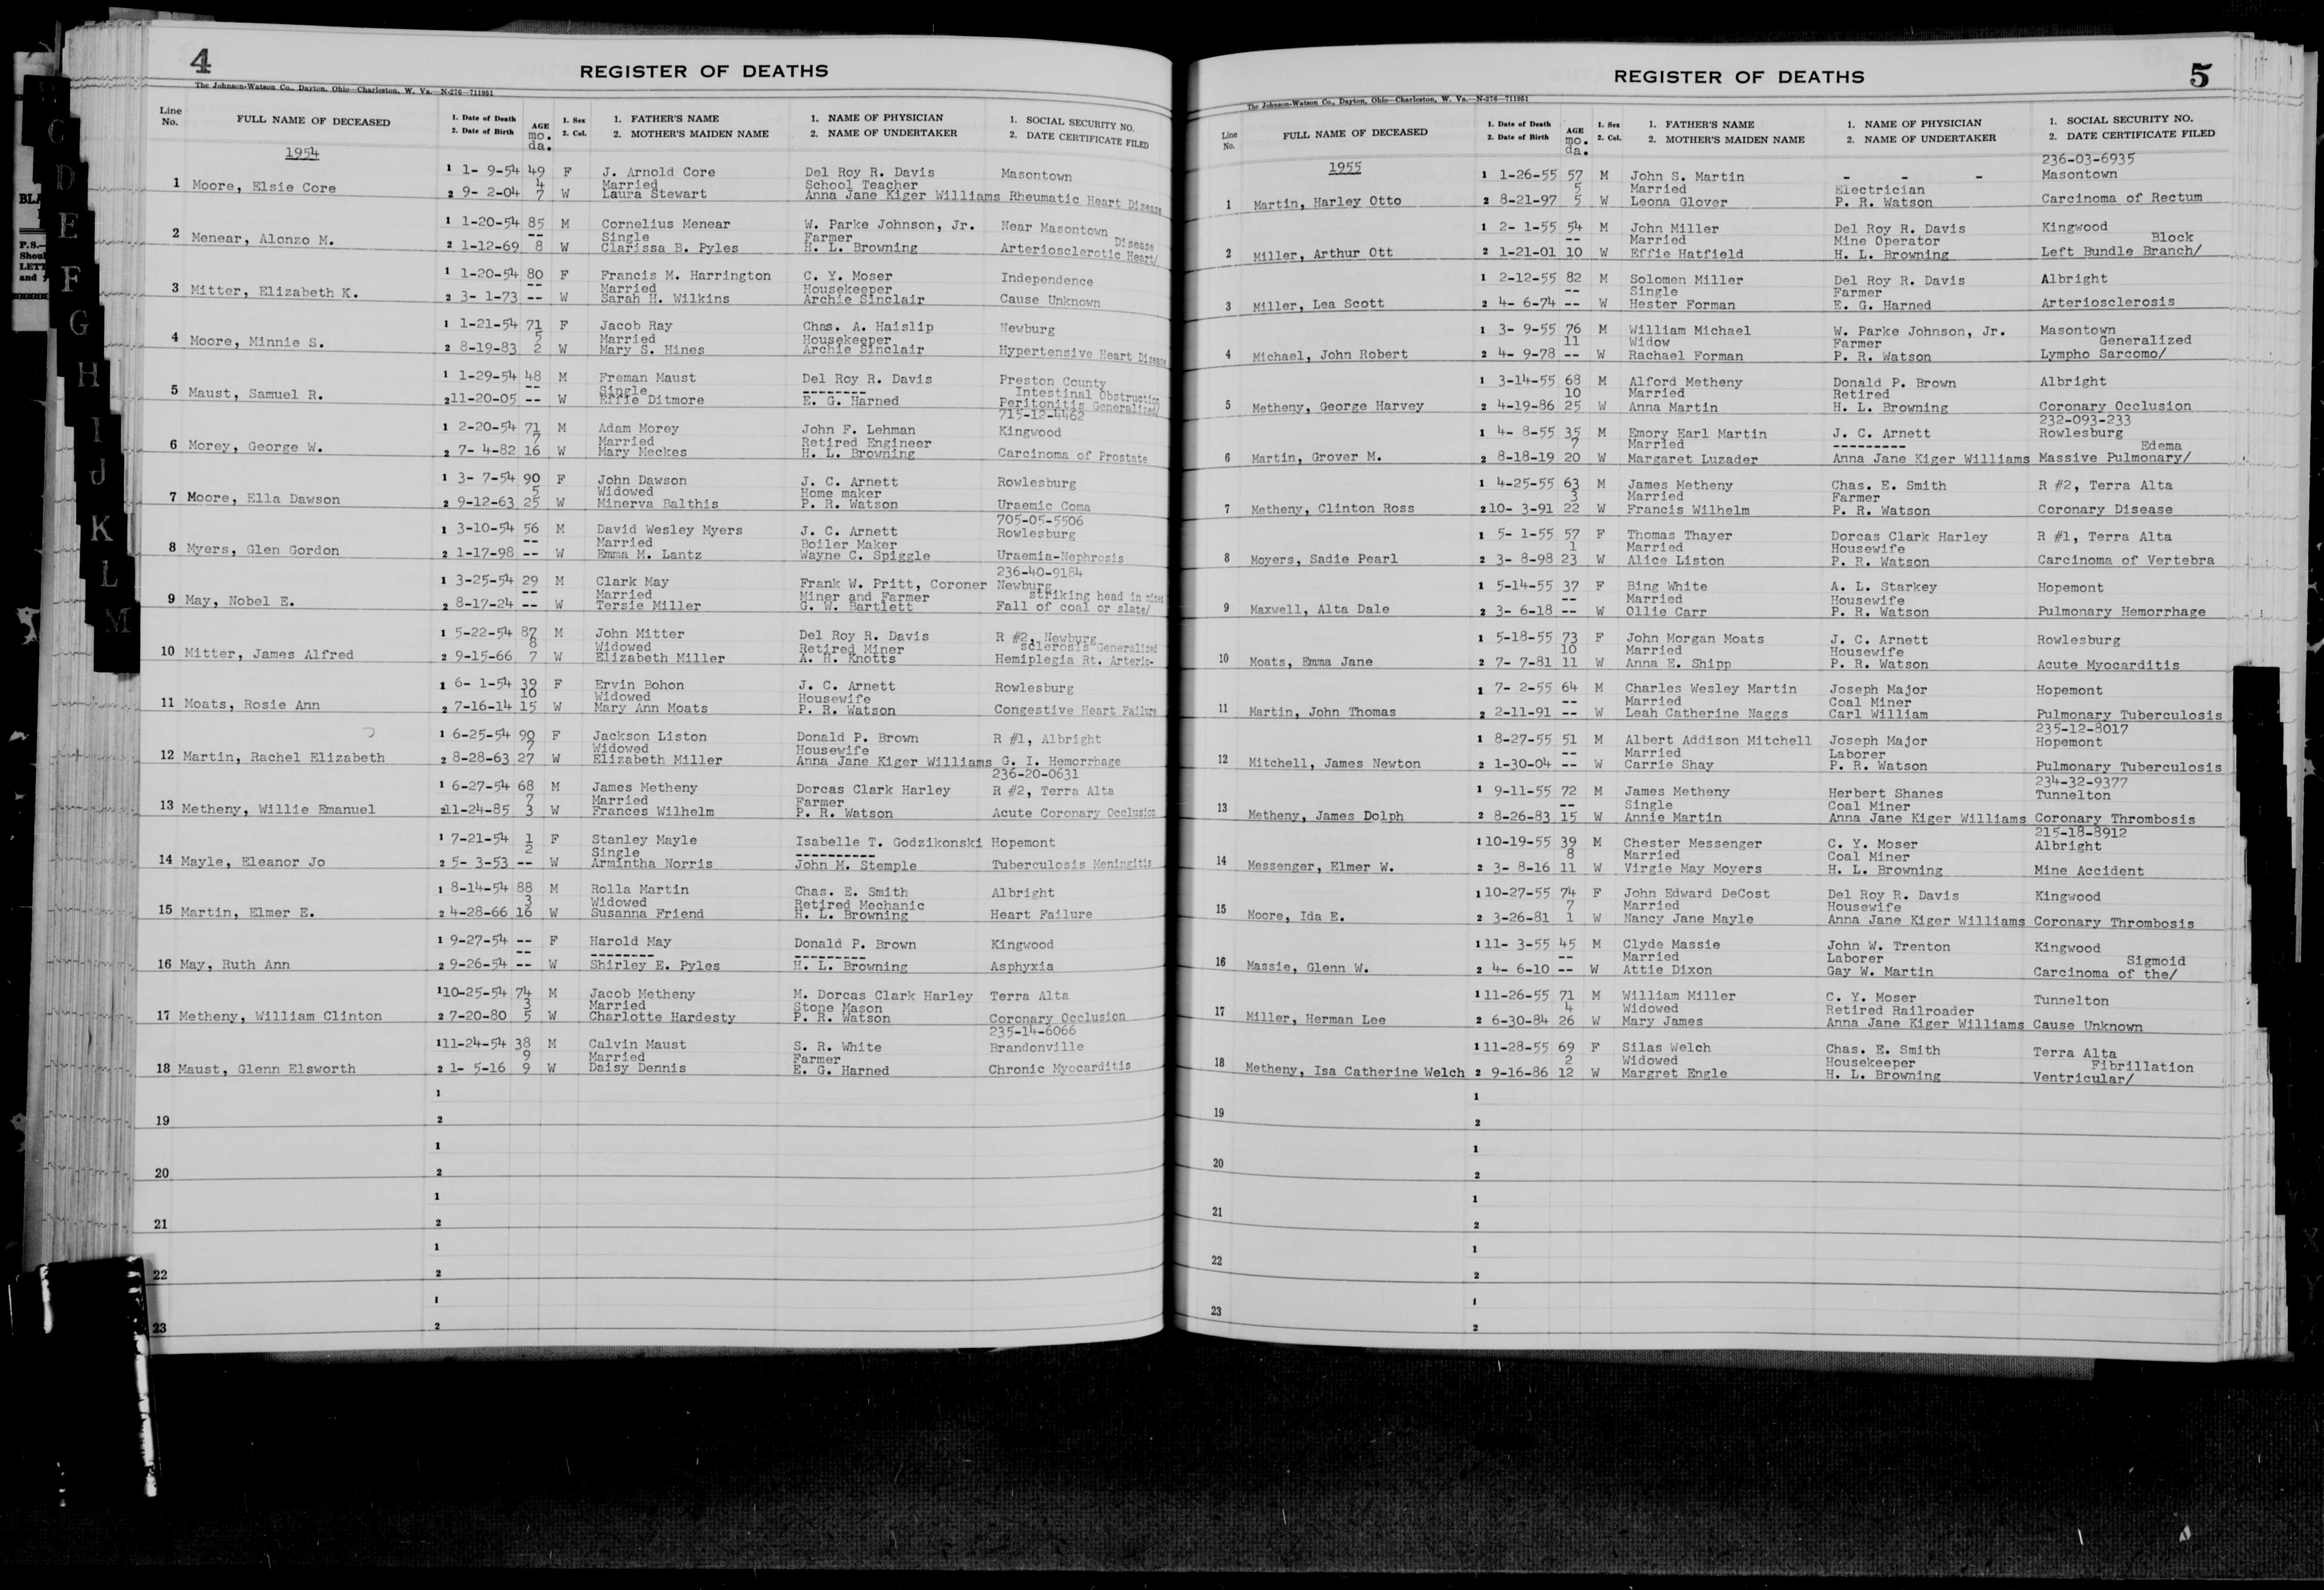 4
REGISTER OF DEATHS
The Johnson-Watson Co., Dayton, Ohio—Charleston, W. Va.—N-276—711951
Line No. FULL NAME OF DECEASED 1. Date of Death 2. Date of Birth AGE mo. da. 1. Sex 2. Col. 1. FATHER'S NAME 2. MOTHER'S MAIDEN NAME 1. NAME OF PHYSICIAN 2. NAME OF UNDERTAKER 1. SOCIAL SECURITY NO. 2. DATE CERTIFICATE FILED
1954
1 1- 9-54 49 F J. Arnold Core Del Roy R. Davis Masontown
1 Moore, Elsie Core 4 Married School Teacher
2 9- 2-04 7 W Laura Stewart Anna Jane Kiger Williams Rheumatic Heart Disease
1 1-20-54 85 M Cornelius Menear W. Parke Johnson, Jr. Near Masontown
2 Menear, Alonzo M. -- Single Farmer Disease
2 1-12-69 8 W Clarissa B. Pyles H. L. Browning Arteriosclerotic Heart/
1 1-20-54 80 F Francis M. Harrington C. Y. Moser Independence
3 Mitter, Elizabeth K. -- Married Housekeeper
2 3- 1-73 -- W Sarah H. Wilkins Archie Sinclair Cause Unknown
1 1-21-54 71 F Jacob Ray Chas. A. Haislip Newburg
4 Moore, Minnie S. 5 Married Housekeeper
2 8-19-83 2 W Mary S. Hines Archie Sinclair Hypertensive Heart Disease
1 1-29-54 48 M Freman Maust Del Roy R. Davis Preston County
5 Maust, Samuel R. -- Single --------- Intestinal Obstruction
2 11-20-05 -- W Effie Ditmore E. G. Harned Peritonitis Generalized/
715-12-4462
1 2-20-54 71 M Adam Morey John F. Lehman Kingwood
6 Morey, George W. 7 Married Retired Engineer
2 7- 4-82 16 W Mary Meckes H. L. Browning Carcinoma of Prostate
1 3- 7-54 90 F John Dawson J. C. Arnett Rowlesburg
7 Moore, Ella Dawson 5 Widowed Home maker
2 9-12-63 25 W Minerva Balthis P. R. Watson Uraemic Coma
705-05-5506
1 3-10-54 56 M David Wesley Myers J. C. Arnett Rowlesburg
8 Myers, Glen Gordon -- Married Boiler Maker
2 1-17-98 -- W Emma M. Lantz Wayne C. Spiggle Uraemia-Nephrosis
236-40-9184
1 3-25-54 29 M Clark May Frank W. Pritt, Coroner Newburg
9 May, Nobel E. -- Married Miner and Farmer striking head in mines
2 8-17-24 -- W Tersie Miller G. W. Bartlett Fall of coal or slate/
1 5-22-54 87 M John Mitter Del Roy R. Davis R #2, Newburg
10 Mitter, James Alfred 8 Widowed Retired Miner sclerosis Generalized
2 9-15-66 7 W Elizabeth Miller A. H. Knotts Hemiplegia Rt. Arterio-
1 6- 1-54 39 F Ervin Bohon J. C. Arnett Rowlesburg
11 Moats, Rosie Ann 10 Widowed Housewife
2 7-16-14 15 W Mary Ann Moats P. R. Watson Congestive Heart Failure
1 6-25-54 90 F Jackson Liston Donald P. Brown R #1, Albright
12 Martin, Rachel Elizabeth 7 Widowed Housewife
2 8-28-63 27 W Elizabeth Miller Anna Jane Kiger Williams G. I. Hemorrhage
236-20-0631
1 6-27-54 68 M James Metheny Dorcas Clark Harley R #2, Terra Alta
13 Metheny, Willie Emanuel 7 Married Farmer
2 11-24-85 3 W Frances Wilhelm P. R. Watson Acute Coronary Occlusion
1 7-21-54 1 F Stanley Mayle Isabelle T. Godzikonski Hopemont
14 Mayle, Eleanor Jo 2 Single ----------
2 5- 3-53 -- W Armintha Norris John M. Stemple Tuberculosis Meningitis
1 8-14-54 88 M Rolla Martin Chas. E. Smith Albright
15 Martin, Elmer E. 3 Widowed Retired Mechanic
2 4-28-66 16 W Susanna Friend H. L. Browning Heart Failure
1 9-27-54 -- F Harold May Donald P. Brown Kingwood
16 May, Ruth Ann -- -------- ---------
2 9-26-54 -- W Shirley E. Pyles H. L. Browning Asphyxia
1 10-25-54 74 M Jacob Metheny M. Dorcas Clark Harley Terra Alta
17 Metheny, William Clinton 3 Married Stone Mason
2 7-20-80 5 W Charlotte Hardesty P. R. Watson Coronary Occlusion
235-14-6066
1 11-24-54 38 M Calvin Maust S. R. White Brandonville
18 Maust, Glenn Elsworth 9 Married Farmer
2 1- 5-16 9 W Daisy Dennis E. G. Harned Chronic Myocarditis
1
19 2
1
20 2
1
21 2
1
22 2
1
23 2
5
REGISTER OF DEATHS
The Johnson-Watson Co., Dayton, Ohio—Charleston, W. Va.—N-276—711951
Line No. FULL NAME OF DECEASED 1. Date of Death 2. Date of Birth AGE mo. da. 1. Sex 2. Col. 1. FATHER'S NAME 2. MOTHER'S MAIDEN NAME 1. NAME OF PHYSICIAN 2. NAME OF UNDERTAKER 1. SOCIAL SECURITY NO. 2. DATE CERTIFICATE FILED
1955 236-03-6935
1 1-26-55 57 M John S. Martin - - - Masontown
5 Married Electrician
1 Martin, Harley Otto 2 8-21-97 5 W Leona Glover P. R. Watson Carcinoma of Rectum
1 2- 1-55 54 M John Miller Del Roy R. Davis Kingwood
-- Married Mine Operator Block
2 Miller, Arthur Ott 2 1-21-01 10 W Effie Hatfield H. L. Browning Left Bundle Branch/
1 2-12-55 82 M Solomen Miller Del Roy R. Davis Albright
-- Single Farmer
3 Miller, Lea Scott 2 4- 6-74 -- W Hester Forman E. G. Harned Arteriosclerosis
1 3- 9-55 76 M William Michael W. Parke Johnson, Jr. Masontown
11 Widow Farmer Generalized
4 Michael, John Robert 2 4- 9-78 -- W Rachael Forman P. R. Watson Lympho Sarcomo/
1 3-14-55 68 M Alford Metheny Donald P. Brown Albright
10 Married Retired
5 Metheny, George Harvey 2 4-19-86 25 W Anna Martin H. L. Browning Coronary Occlusion
232-093-233
1 4- 8-55 35 M Emory Earl Martin J. C. Arnett Rowlesburg
7 Married --------- Edema
6 Martin, Grover M. 2 8-18-19 20 W Margaret Luzader Anna Jane Kiger Williams Massive Pulmonary/
1 4-25-55 63 M James Metheny Chas. E. Smith R #2, Terra Alta
3 Married Farmer
7 Metheny, Clinton Ross 2 10- 3-91 22 W Francis Wilhelm P. R. Watson Coronary Disease
1 5- 1-55 57 F Thomas Thayer Dorcas Clark Harley R #1, Terra Alta
1 Married Housewife
8 Moyers, Sadie Pearl 2 3- 8-98 23 W Alice Liston P. R. Watson Carcinoma of Vertebra
1 5-14-55 37 F Bing White A. L. Starkey Hopemont
-- Married Housewife
9 Maxwell, Alta Dale 2 3- 6-18 -- W Ollie Carr P. R. Watson Pulmonary Hemorrhage
1 5-18-55 73 F John Morgan Moats J. C. Arnett Rowlesburg
10 Married Housewife
10 Moats, Emma Jane 2 7- 7-81 11 W Anna E. Shipp P. R. Watson Acute Myocarditis
1 7- 2-55 64 M Charles Wesley Martin Joseph Major Hopemont
-- Married Coal Miner
11 Martin, John Thomas 2 2-11-91 -- W Leah Catherine Naggs Carl William Pulmonary Tuberculosis
235-12-8017
1 8-27-55 51 M Albert Addison Mitchell Joseph Major Hopemont
-- Married Laborer
12 Mitchell, James Newton 2 1-30-04 -- W Carrie Shay P. R. Watson Pulmonary Tuberculosis
234-32-9377
1 9-11-55 72 M James Metheny Herbert Shanes Tunnelton
-- Single Coal Miner
13 Metheny, James Dolph 2 8-26-83 15 W Annie Martin Anna Jane Kiger Williams Coronary Thrombosis
215-18-8912
1 10-19-55 39 M Chester Messenger C. Y. Moser Albright
8 Married Coal Miner
14 Messenger, Elmer W. 2 3- 8-16 11 W Virgie May Moyers H. L. Browning Mine Accident
1 10-27-55 74 F John Edward DeCost Del Roy R. Davis Kingwood
7 Married Housewife
15 Moore, Ida E. 2 3-26-81 1 W Nancy Jane Mayle Anna Jane Kiger Williams Coronary Thrombosis
1 11- 3-55 45 M Clyde Massie John W. Trenton Kingwood
-- Married Laborer Sigmoid
16 Massie, Glenn W. 2 4- 6-10 -- W Attie Dixon Gay W. Martin Carcinoma of the/
1 11-26-55 71 M William Miller C. Y. Moser Tunnelton
4 Widowed Retired Railroader
17 Miller, Herman Lee 2 6-30-84 26 W Mary James Anna Jane Kiger Williams Cause Unknown
1 11-28-55 69 F Silas Welch Chas. E. Smith Terra Alta
2 Widowed Housekeeper Fibrillation
18 Metheny, Isa Catherine Welch 2 9-16-86 12 W Margret Engle H. L. Browning Ventricular/
1
19 2
1
20 2
1
21 2
1
22 2
1
23 2
C
D
E
F
G
H
I
J
K
L
M